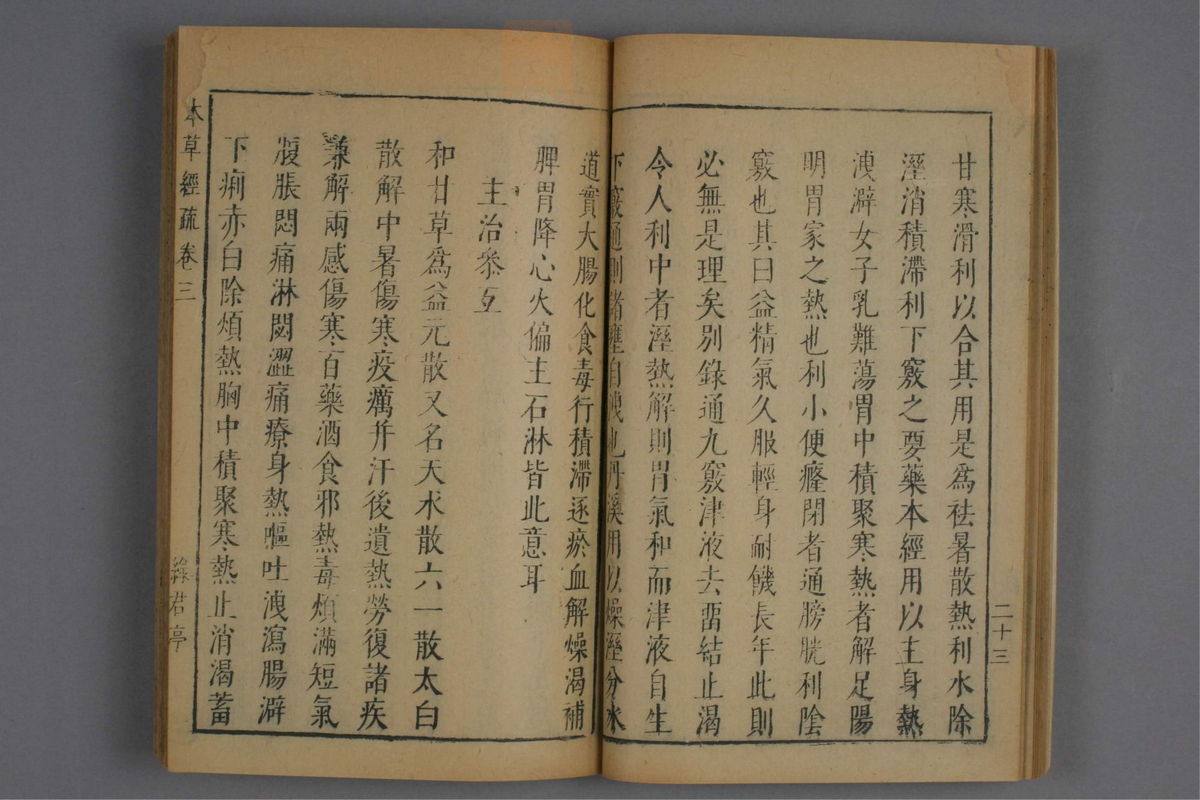 甘寒滑利以合其用是爲祛暑散熱利水除
溼消積滯利下竅之要藥本經用以主身熱
洩澼女子乳難蕩胃中積聚寒熱者解足陽
明胃家之熱也利小便癃閉者通膀胱利陰
竅也其曰益精氣久服輕身耐饑長年此則
必無是理矣別錄通九竅津液去畱結止渴
令人利中者溼熱解則胃氣和而津液自生
下竅通則諸壅自洩也丹溪用以燥溼分水
道實大腸化食毒行積滯逐瘀血解燥渴補
脾胃降心火偏主石淋皆此意耳
主治叅互
和甘草爲益元散又名天水散六一散太白
散解中暑傷寒疫癘并汗後遺熱勞復諸疾
兼解兩感傷寒百藥酒食邪熱毒煩滿短氣
腹脹悶痛淋閟澀痛療身熱嘔吐洩瀉腸澼
下痢赤白除煩熱胸中積聚寒熱止消渴蓄
本草經疏卷三
綠君亭
二十三